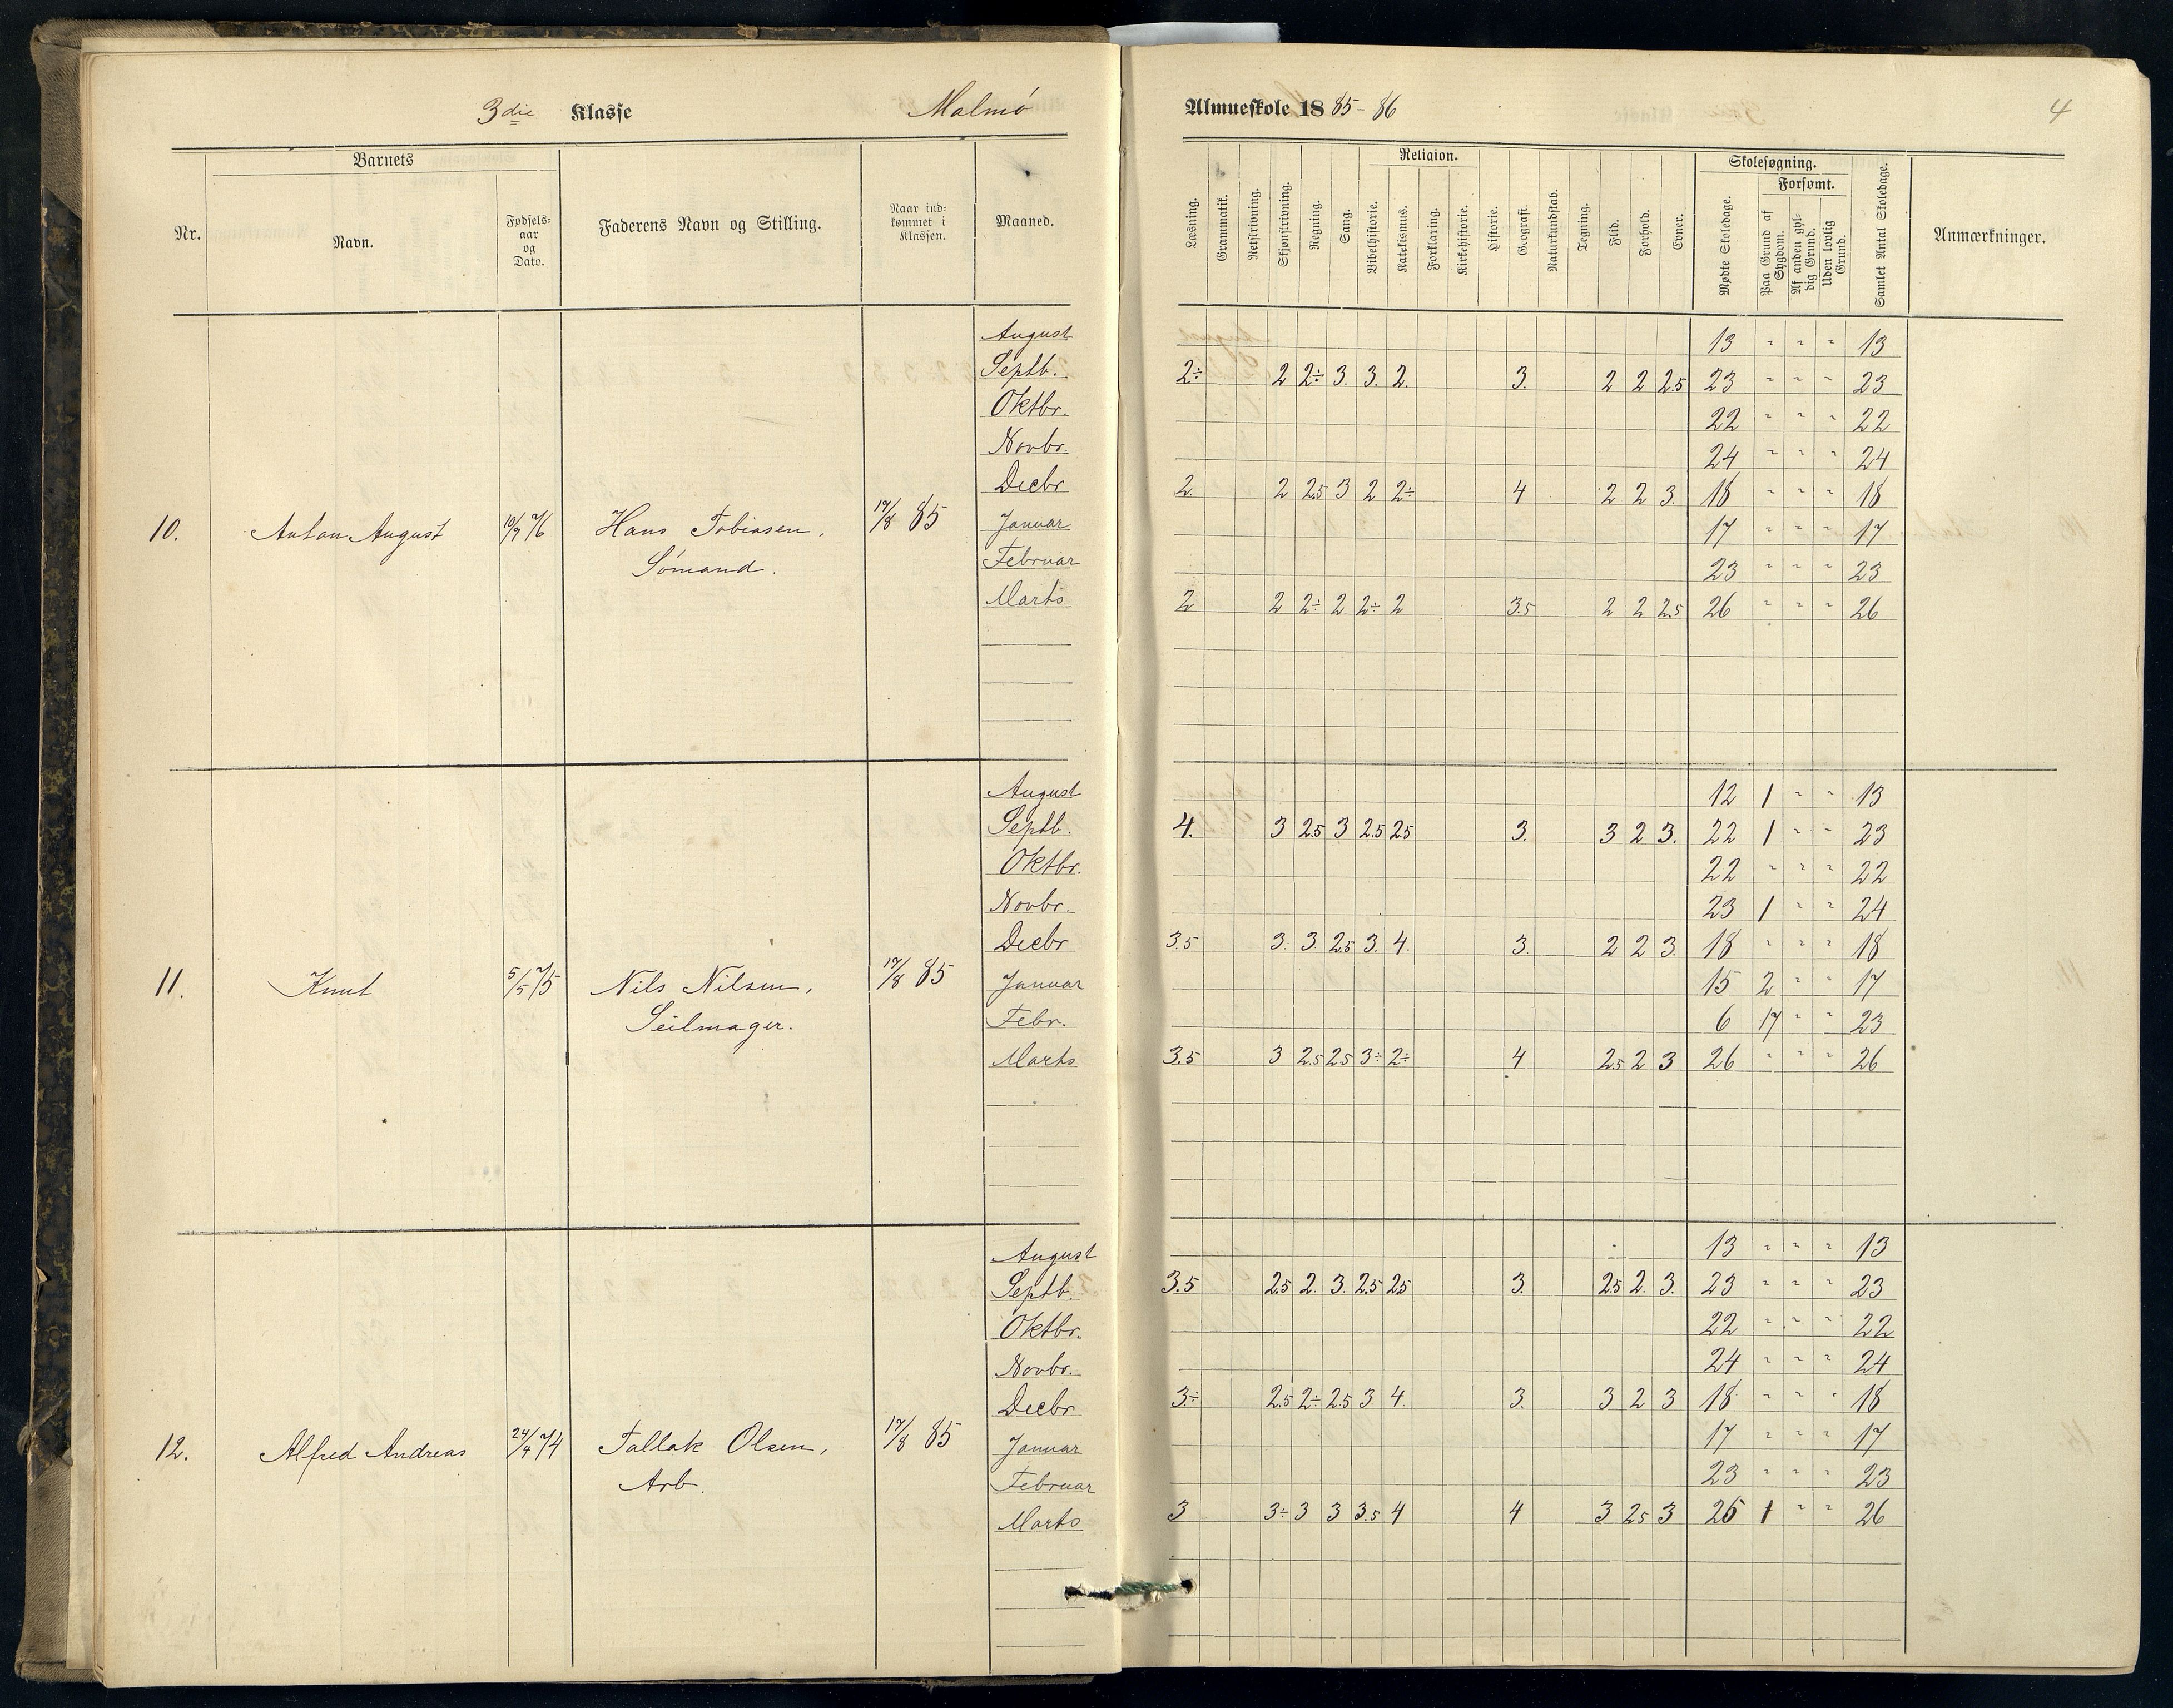 3die Klasse Malmö Almueskole 1885-86 4
Nr. Barnets Navn. Fødsels-aar og Dato. Faderens Navn og Stilling. Naar ind-kommet i Klassen. Maaned.
Læsning. Grammatik. Retskrivning. Skjønskrivning. Regning. Sang. Religion. Bibelhistorie. Katekismus. Forklaring. Kirkehistorie. Historie. Geografi. Naturkundskab. Tegning. Flid. Forhold. Evner. Skolesøgning. Mødte Skoledage. Forsømt. Paa Grund af Sygdom. Af anden gyl-dig Grund. Uden lovlig Grund. Samlet Antal Skoledage. Anmærkninger.
August 13 " " " 13
Septb. 2÷ 2 2÷ 3. 3. 2. 3. 2 2 2.5 23 " " " 23
Oktbr. 22 " " " 22
Novbr. 24 " " " 24
Decbr 2. 2 2.5 3 2 2÷ 4 2 2 3. 18 " " " 18
10. Anton August 10/9 76 Hans Tobiasen, 17/8 85 Januar 17 " " " 17
Sömand. Februar 23 " " " 23
Marts 2 2 2÷ 2 2÷ 2 3.5 2 2 2.5 26 " " " 26
August 12 1 " " 13
Septb. 4. 3 2.5 3 2.5 2.5 3. 3 2 3. 22 1 " " 23
Oktbr. 22 " " " 22
Novbr. 23 1 " " 24
Decbr 3.5 3. 3. 2.5 3. 4. 3. 2 2 3. 18 " " " 18
11. Knut 5/5 75 Nils Nilsen, 17/8 85 Januar 15 2 " " 17
Seilmager. Febr. 6 17 " " 23
Marts 3.5 3 2.5 2.5 3÷ 2÷ 4 2.5 2 3 26 " " " 26
August 13 " " " 13
Septb. 3.5 2.5 2. 3. 2.5 2.5 3. 2.5 2. 3. 23 " " " 23
Oktbr. 22 " " " 22
Novbr. 24 " " " 24
Decbr 3÷ 2.5 2÷ 2.5 3 4. 3. 3 2 3 18 " " " 18
12. Alfred Andreas 24/4 74 Tallak Olsen, 17/8 85 Januar 17 " " " 17
Arb. Februar 23 " " " 23
Marts 3 3÷ 3 3 3.5 4 4 3 2.5 3 25 1 " " 26